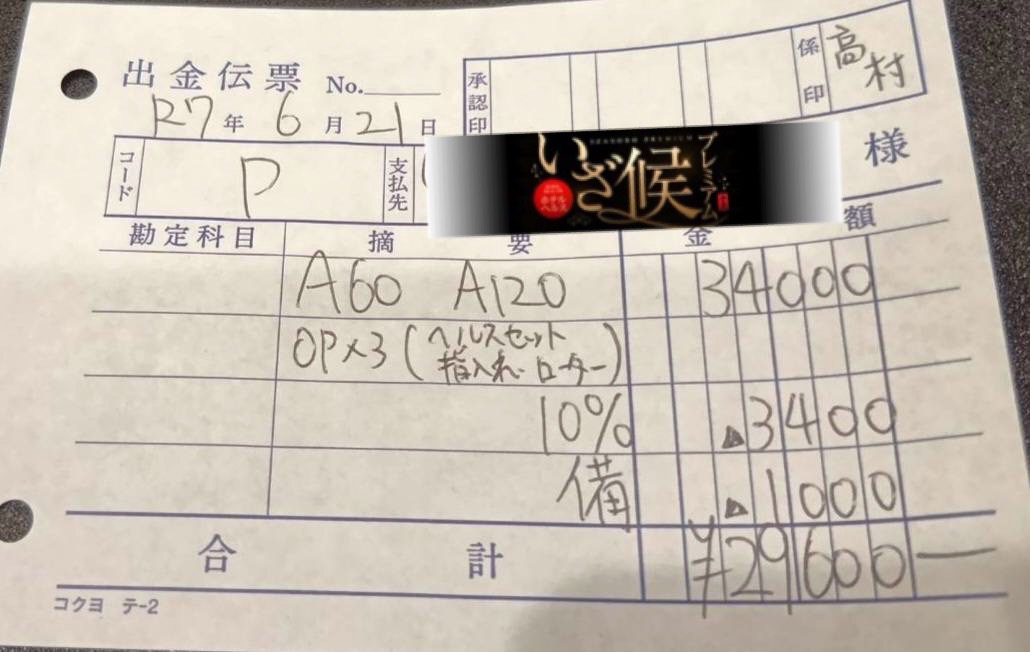 出金伝票 No.
承認印 係印 高村
R7年6月21日
コード P 支払先 様
SEASONED PREMIUM
いざ候 プレミアム
ホテルヘルス
勘定科目 摘要 金額
A60 A120 34000
OP×3(ヘルスセット
指入れ・ローター)
10% ▲3400
備 ▲1000
合計 ¥29600—
コクヨ テ-2